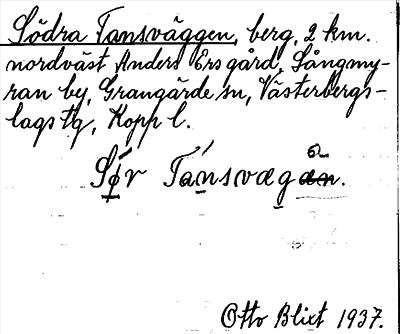 Södra Tansväggen, berg, 2 km.
nordväst Anders Ersgård, Sångmy-
ran by, Grangärde sn, Västerbergs-
lags tg, Kopp l.
Sør Tansvæga.
Otto Blixt 1937.